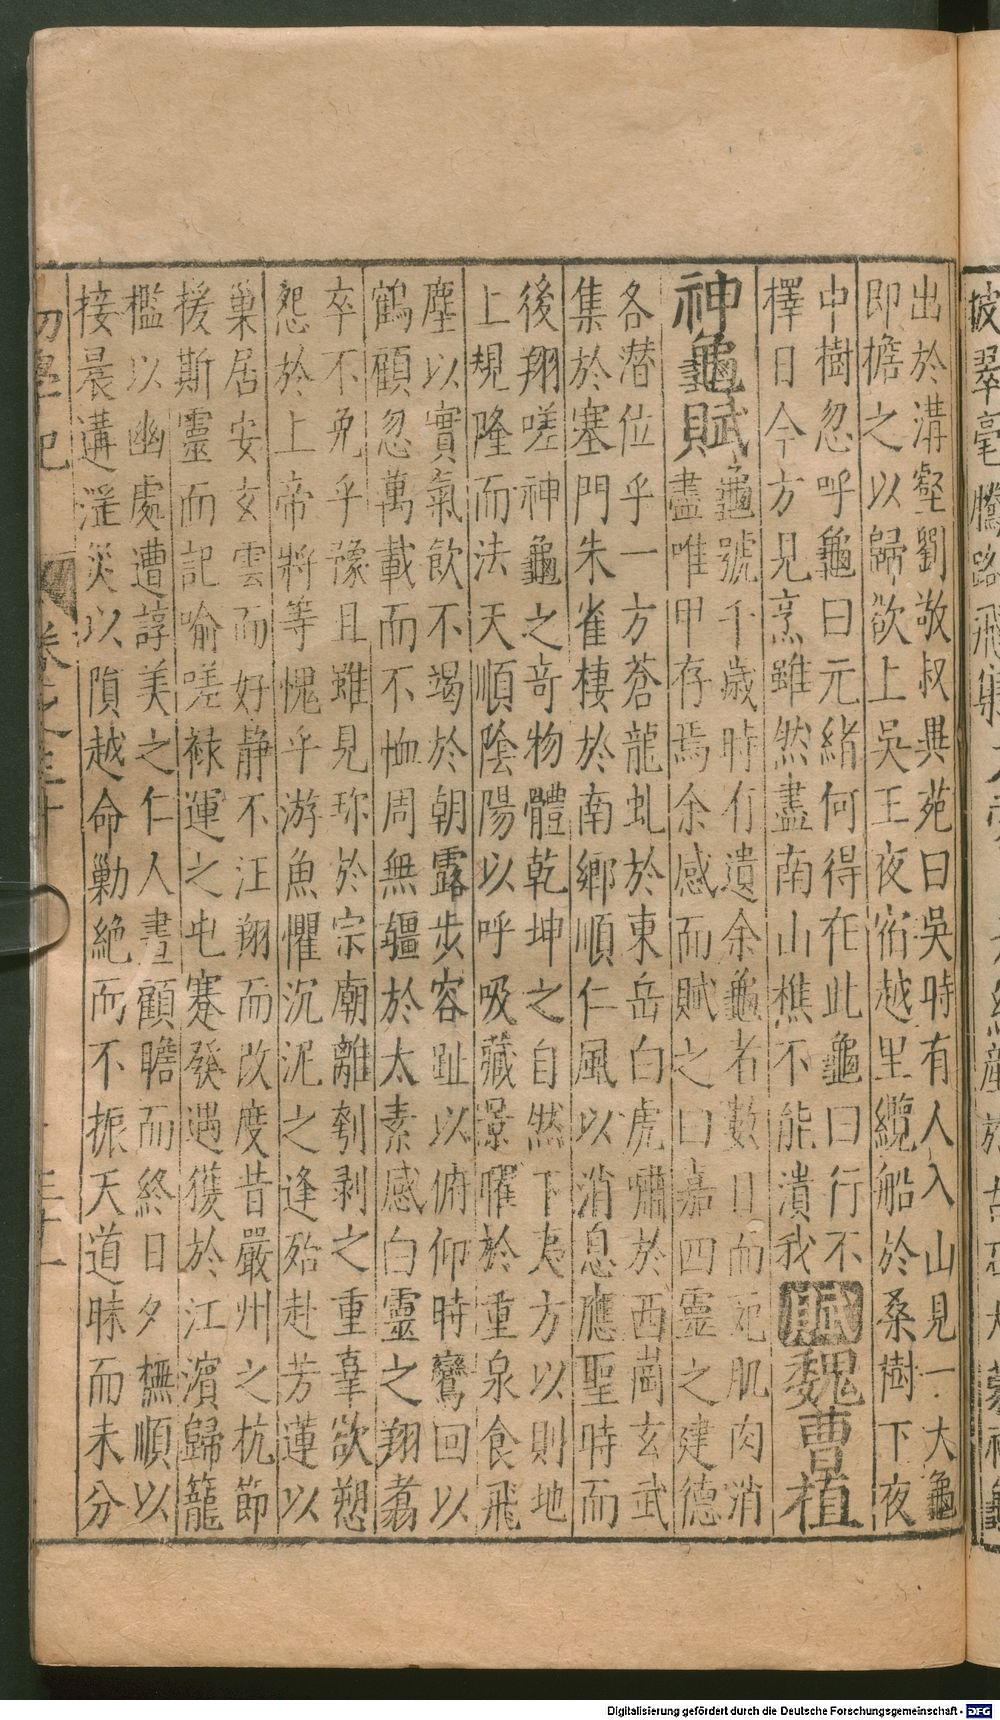 披翠毫騰路飛集
出於溝壑劉敬叔異苑曰吳時有人入山見一大龜
即擔之以歸欲上吳王夜宿越里纜船於桑樹下夜
中樹忽呼龜曰元緒何得在此龜曰行不
擇日今方見烹雖然盡南山樵不能潰我
賦魏曹植
神龜賦
龜號千歲時有遺余龜者數日而死肌肉消
盡唯甲存焉余感而賦之曰嘉四靈之建德
各潜位乎一方蒼龍虬於東岳白虎嘯於西崗玄武
集於塞門朱雀棲於南鄉順仁風以消息應聖時而
後翔嗟神龜之奇物體乾坤之自然下夷方以則地
上規隆而法天順陰陽以呼吸藏景曜於重泉食飛
塵以實氣飲不竭於朝露步容趾以俯仰時鸞回以
鶴顧忽萬載而不恤周無疆於太素感白靈之翔翥
卒不免乎豫且雖見珎於宗廟離刳剥之重辜欲愬
怨於上帝將等愧乎游魚懼沉泥之逢殆赴芳蓮以
巢居安玄雲而好静不汪翔而改度昔嚴州之杭節
援斯靈而記喻嗟祿運之屯蹇發遇獲於江濱歸籠
檻以幽處遭諄美之仁人晝顧瞻而終日夕撫順以
接晨遘淫災以隕越命勦絶而不振天道昧而未分
初學記 卷之三十 三十一
Digitalisierung gefördert durch die Deutsche Forschungsgemeinschaft - DFG